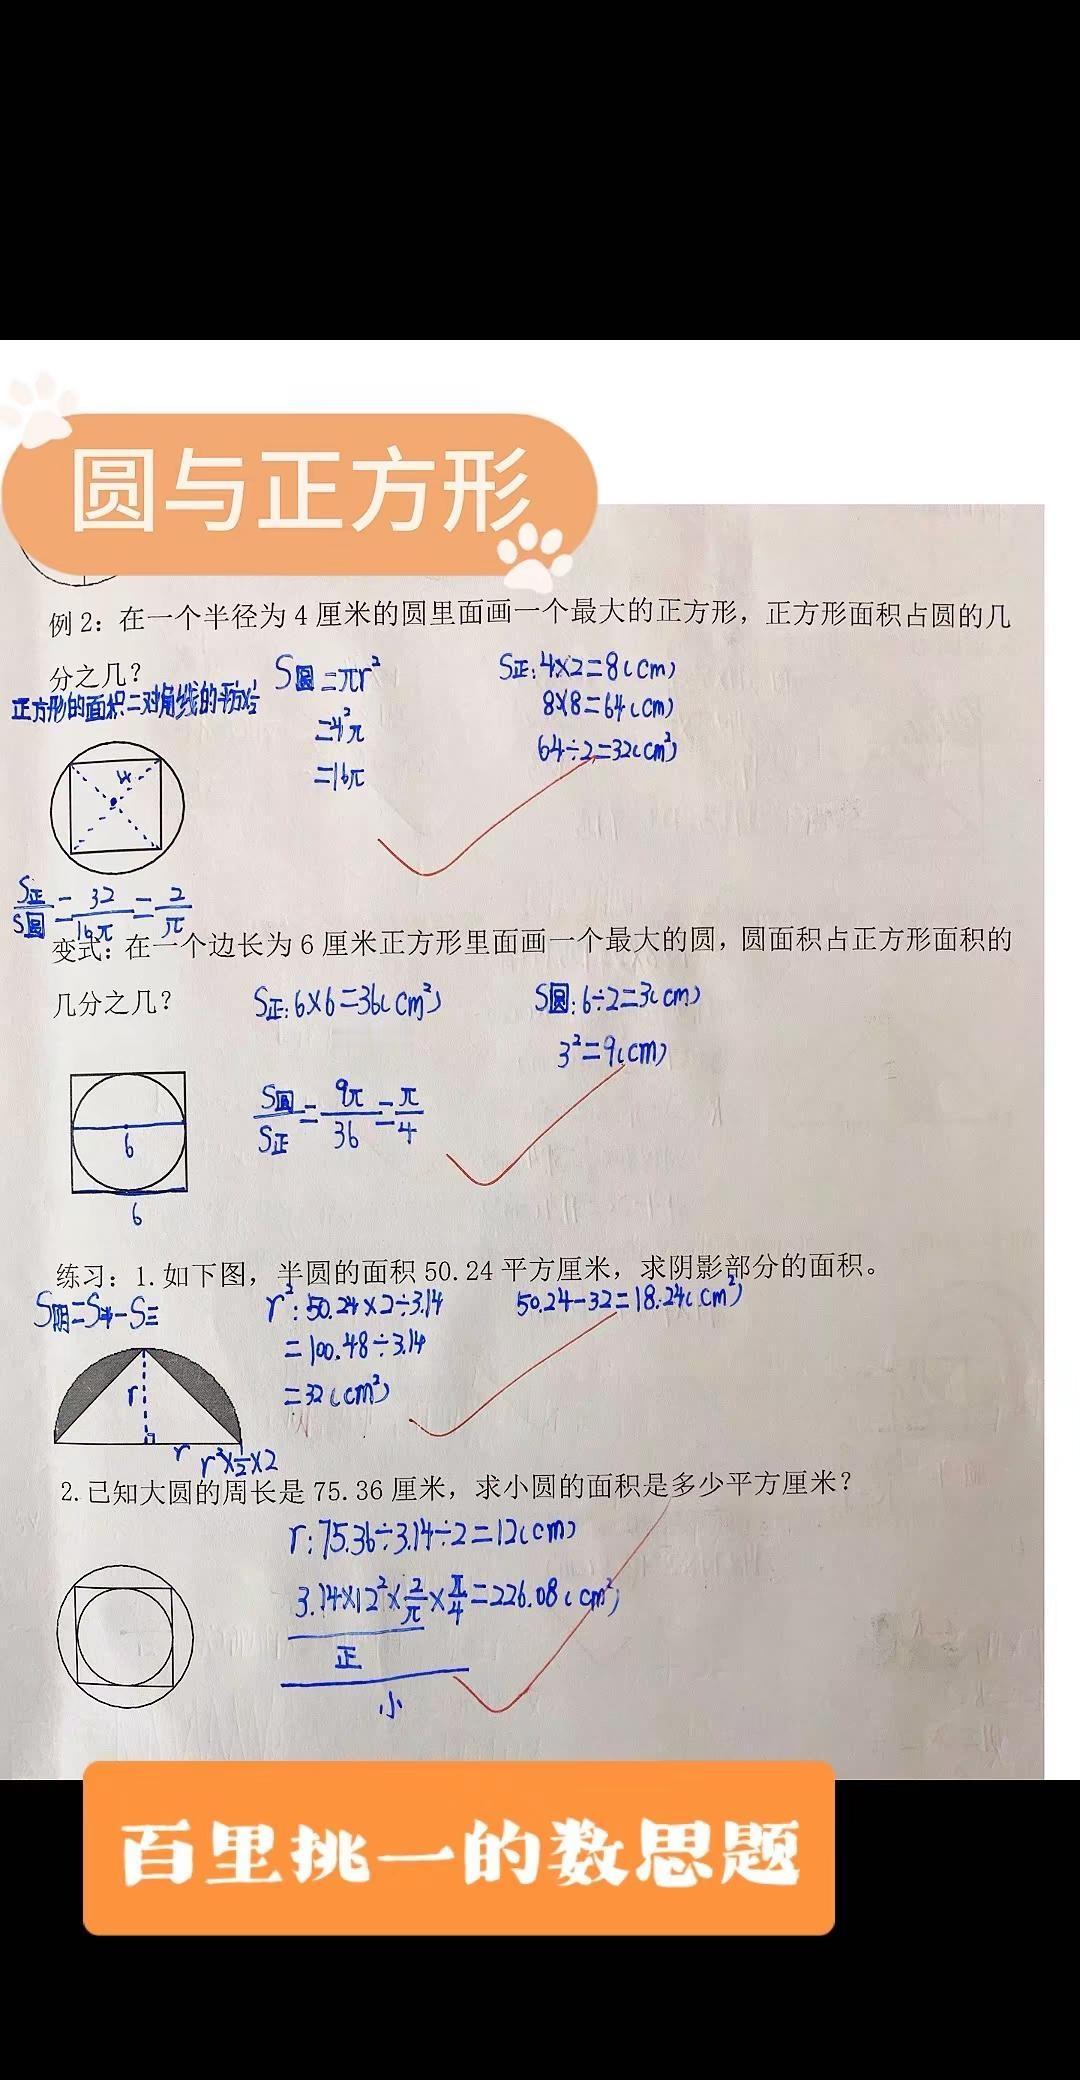 圆与正方形
例2：在一个半径为4厘米的圆里面画一个最大的正方形，正方形面积占圆的几
分之几？
正方形的面积=对角线的平方×½
S圆=πr²
=4²π
=16π
S正:4×2=8(cm)
8×8=64(cm)
64÷2=32(cm²)
4
S正/S圆=32/16π=2/π
变式：在一个边长为6厘米正方形里面画一个最大的圆，圆面积占正方形面积的
几分之几？
S正:6×6=36(cm²)
S圆:6÷2=3(cm)
3²=9(cm)
6
6
S圆/S正=9π/36=π/4
练习：1.如下图，半圆的面积50.24平方厘米，求阴影部分的面积。
S阴=S半-S三
r²:50.24×2÷3.14
=100.48÷3.14
=32(cm²)
50.24-32=18.24(cm²)
r
r
r²×½×2
2.已知大圆的周长是75.36厘米，求小圆的面积是多少平方厘米？
r:75.36÷3.14÷2=12(cm)
3.14×12²×2/π×π/4=226.08(cm²)
正
小
百里挑一的数思题